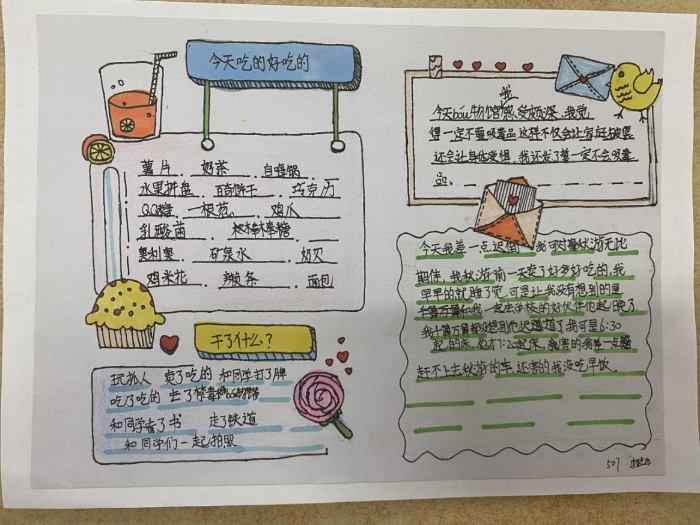 今天吃的好吃的
薯片 奶茶 自嗨锅
水果拼盘 百奇饼干 巧克力
QQ糖 一根葱 鸡爪
乳酸菌 棒棒糖
奥利奥 矿泉水 奶贝
鸡米花 辣条 面包
干了什么？
玩 人 买了吃的 和同学打了牌
吃了吃的 去了禁毒博bou物馆
和同学看了书 走了铁道
和同学们一起拍照
我
今天bou物馆感受颇深，我觉
得一定不要吸毒品这样不仅会让家
还会让身体受损，我还发了誓一定不会吸毒
品。
今天我差一点迟到，我可对秋游无比
期待，我秋游前一天买了好多好吃的，我
早早的就睡了觉，可是让我没有想到的是
千算万算和我一起去学校的好伙伴他起晚了
我千算万算都没想到他迟到了我可是6:30
起的床，他7:20起床，害的我差一点
赶不上去秋游的车 还害的我没吃早饭。
507